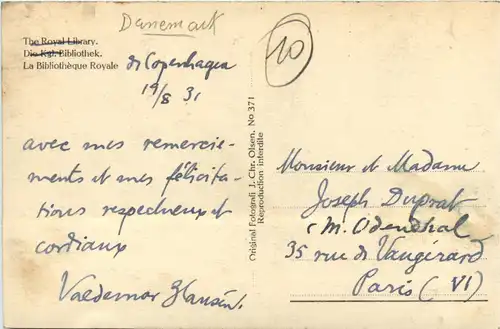 Danemark
The Royal Library.
Die Kgl. Bibliothek.
La Bibliothèque Royale
de Copenhagen
19/8 31
avec mes remercie-
ments et mes félicita-
tions respectueux et
cordiaux
Valdemar Hansen.
Original Fotografi J. Chr. Olsen. No 371
Reproduction interdite
10
Monsieur et Madame
Joseph Duprat
c/M. Odendhal
35 rue de Vaugirard
Paris (VI)